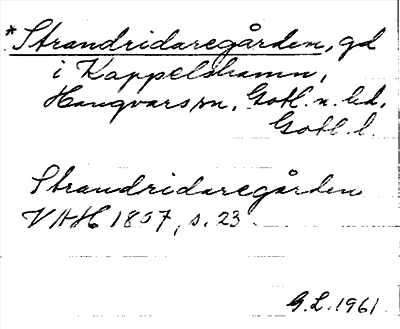 *Strandridaregården, gd
i Kappelshamn,
Hangvars sn, Gotl. n. hd,
Gotl. l.
Strandridaregården
VAH 1807, s. 23.
G.L. 1961.